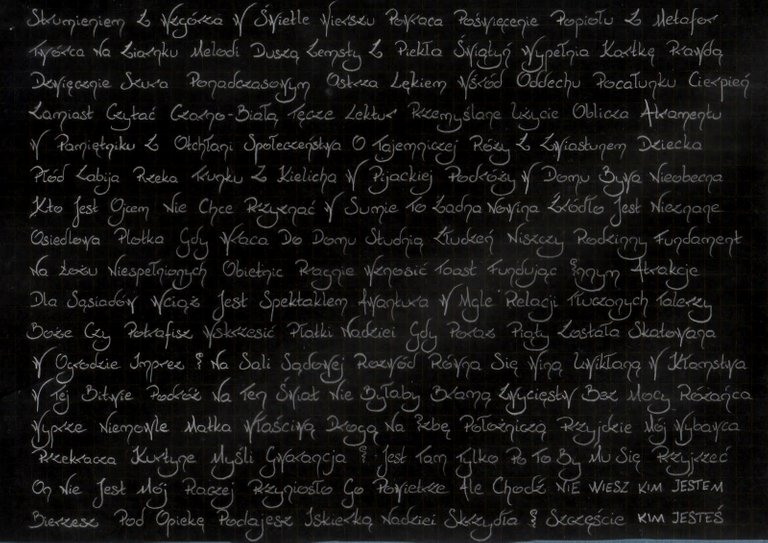 Strumieniem Z Wzgórza W Świetle Wierszu Powraca Poświęcenie Popiołu Z Metafor
Twórca Na Ziarnku Melodi Duszą Zemsty Z Piekła Świątyń Wypełnia Kartkę Prawdą
Dźwięcznie Szura Ponadczasowym Ostrza Lękiem Wśród Oddechu Pocałunku Cierpień
Zamiast Czytać Czarno-Białą Tęcze Lektur Przemyślane Użycie Oblicza Atramentu
W Pamiętniku Z Otchłani Społeczeństwa O Tajemniczej Róży Z Zwiastunem Dziecka
Płód Zabija Rzeka Trunku Z Kielicha W Pijackiej Podróży W Domu Bywa Nieobecna
Kto Jest Ojcem Nie Chce Przyznać W Sumie To Żadna Nowina Źródło Jest Nieznane
Osiedlowa Plotka Gdy Wraca Do Domu Studnią Złudzeń Niszczy Rodzinny Fundament
Na Łożu Niespełnionych Obietnic Pragnie Wznosić Toast Fundując Innym Atrakcje
Dla Sąsiadów Wciąż Jest Spektaklem Awantura W Mgle Relacji Tłuczonych Talerzy
Boże Czy Potrafisz Wskrzesić Płatki Nadziei Gdy Poraz Piąty Została Skatowana
W Ogrodzie Imprez I Na Sali Sądowej Rozwód Równa Się Winą Uwikłaną W Kłamstwa
W Tej Bitwie Podróż Na Ten Świat Nie Byłaby Bramą Zwycięstw Bez Mocy Różańca
Wyprze Niemowle Matka Właściwą Drogą Na Izbę Położniczą Przyjdzie Mój Wybawca
Przekracza Kurtynę Myśli Gwarancja I Jest Tam Tylko Po To By Mu Się Przyjrzeć
On Nie Jest Mój Raczej Przyniosło Go Powietrze Ale Chodź NIE WIESZ KIM JESTEM
Bierzesz Pod Opiekę Podajesz Iskierką Nadziei Skrzydła I Szczęście KIM JESTEŚ